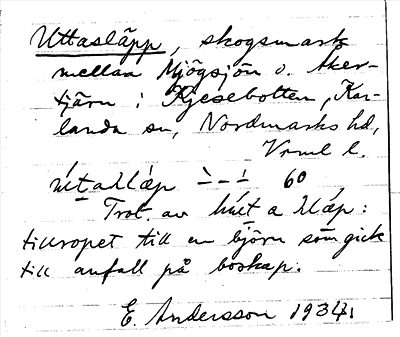 Uttasläpp, skogsmark
mellan Mjögsjön o. Åker-
tjärn i Kjesebotten, Kar-
landa sn, Nordmarks hd,
Vrml l.
60
Trol. av a släp:
tillropet till en björn som gick
till anfall på boskap.
E. Andersson 1934.